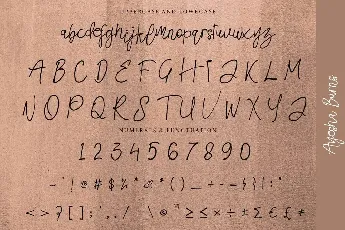 UPPERCASE AND LOWERCASE
abcdefghijklmnopqrstuvwxyz
A B C D E F G H I J K L M
N O P Q R S T U V W X Y Z
NUMERALS & PUNCTUATION
1 2 3 4 5 6 7 8 9 0
~ ` ! @ # $ % ^ & * ( ) _ + - = { } | : "
< > ? [ ] ; ' , . /